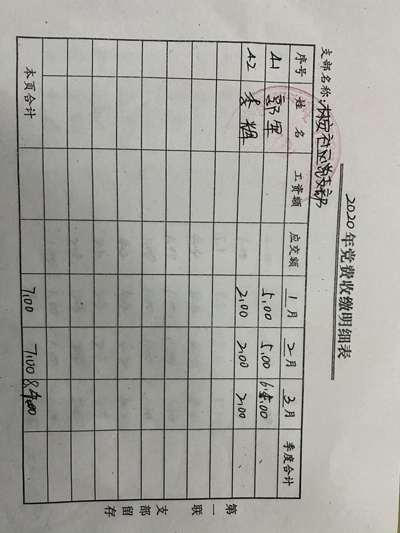 2020年党费收缴明细表
支部名称:林安社区党支部
序号 姓名 工资额 应交额 1月 2月 3月 季度合计
41 郭军 5.00 5.00 6.00
42 李辉 2.00 2.00 2.00
本页合计 7.00 7.00 8.00
第一联 支部留存